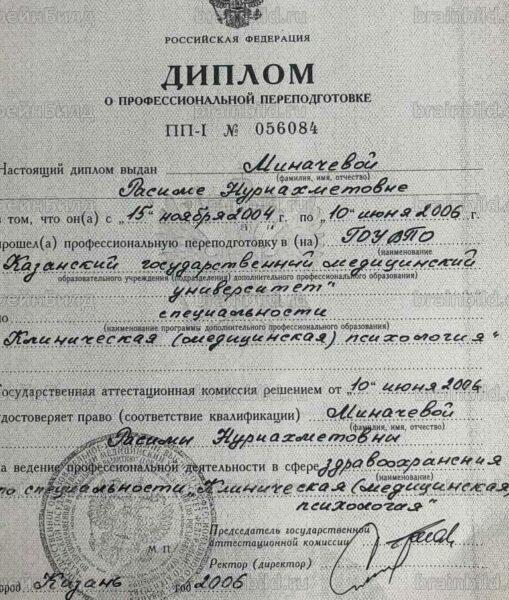 РОССИЙСКАЯ ФЕДЕРАЦИЯ
ДИПЛОМ
О ПРОФЕССИОНАЛЬНОЙ ПЕРЕПОДГОТОВКЕ
ПП-I № 056084
Настоящий диплом выдан Миначевой
(фамилия, имя, отчество)
Расиме Нуриахметовне
в том, что он(а) с „15“ ноября 2004 г. по „10“ июня 2006 г.
прошел(а) профессиональную переподготовку в (на) ГОУ ВПО
(наименование
„Казанский государственный медицинский
образовательного учреждения (подразделения) дополнительного профессионального образования)
университет“
по специальности
(наименование программы дополнительного профессионального образования)
„Клиническая (медицинская) психология“
Государственная аттестационная комиссия решением от „10“ июня 2006
удостоверяет право (соответствие квалификации) Миначевой
(фамилия, имя, отчество)
Расимы Нуриахметовны
на ведение профессиональной деятельности в сфере здравоохранения
(наименование)
по специальности „Клиническая (медицинская)
психология“
Председатель государственной
аттестационной комиссии
М. П.
Ректор (директор)
Город Казань год 2006
brainbild.ru